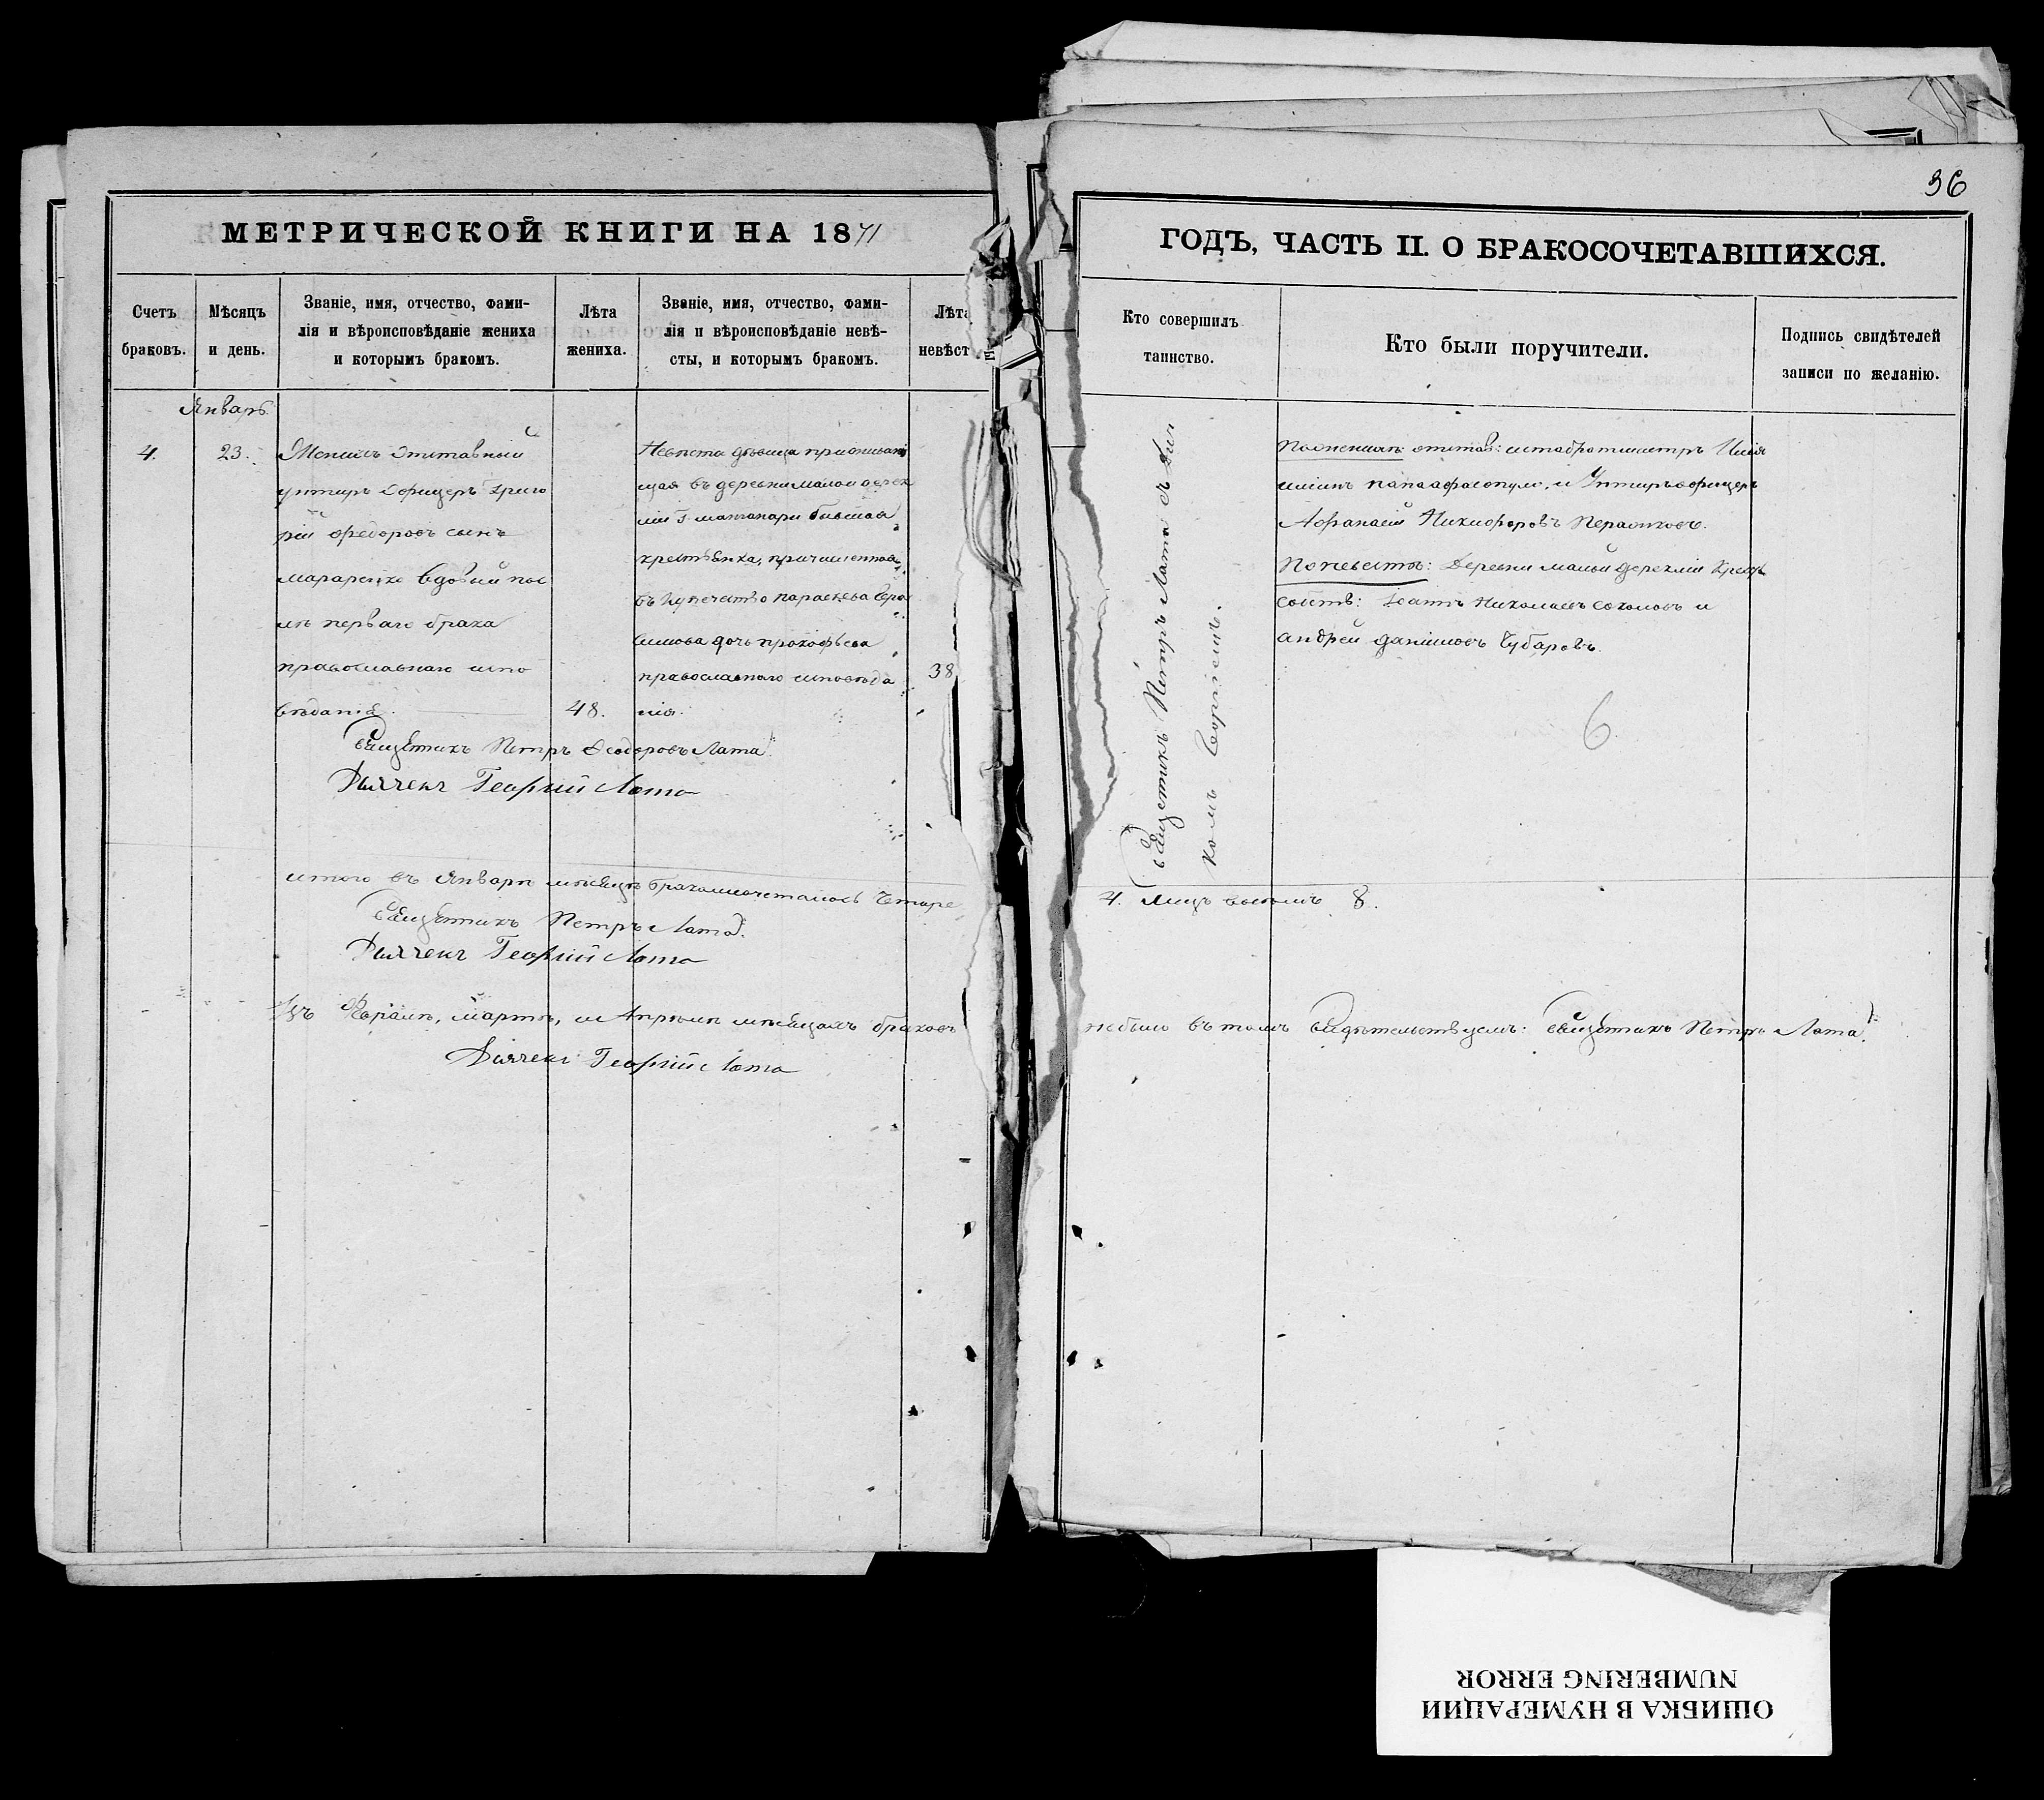 36
МЕТРИЧЕСКОЙ КНИГИ НА 1871
ГОДЪ, ЧАСТЬ II. О БРАКОСОЧЕТАВШИХСЯ.
Счетъ
браковъ.
Мѣсяцъ
и день.
Званіе, имя, отчество, фами-
лія и вѣроисповѣданіе жениха
и которымъ бракомъ.
Лѣта
жениха.
Званіе, имя, отчество, фами-
лія и вѣроисповѣданіе невѣ-
сты, и которымъ бракомъ.
Лѣта
невѣст
Кто совершилъ
таинство.
Кто были поручители.
Подпись свидѣтелей
записи по желанію.
Январь
4.
23.
Женихъ Отставный
унтеръ Офицеръ Григо
рій Федоровъ сынъ
вдовый пос
лѣ перваго брака
православнаго испо
вѣданія.
48.
Невѣста дѣвица
щая въ деревни малой дерек
лій Г. бывшая
крестьянка, причисленная
въ купечество параскева Гера
симова дочь прокофьева
православнаго исповѣда
нія.
38
Священникъ Петръ Лата съ Дяч
комъ Георгіемъ.
По женихѣ: отстав:
и Унтеръ офицеръ
Афанасій Никифоровъ
По невестѣ: Деревни малой дереклій Крест
собств: Николаевъ соколовъ и
андрей даниловъ Чубаровъ.
6
Священникъ Петръ Ѳеодоровъ Лата
Дьячекъ Георгій Лата
итого въ Январѣ мѣсяцѣ бракосочеталось Четыре
4. Лицъ восемь 8.
Священникъ Петръ Лата.
Дьячекъ Георгій Лата
Въ мартѣ, и Апрѣлѣ мѣсяцахъ браковъ
небыло въ томъ свидѣтельствуемъ: Священникъ Петръ Лата.
Дьячекъ Георгій Лата
ОШИБКА В НУМЕРАЦИИ
NUMBERING ERROR